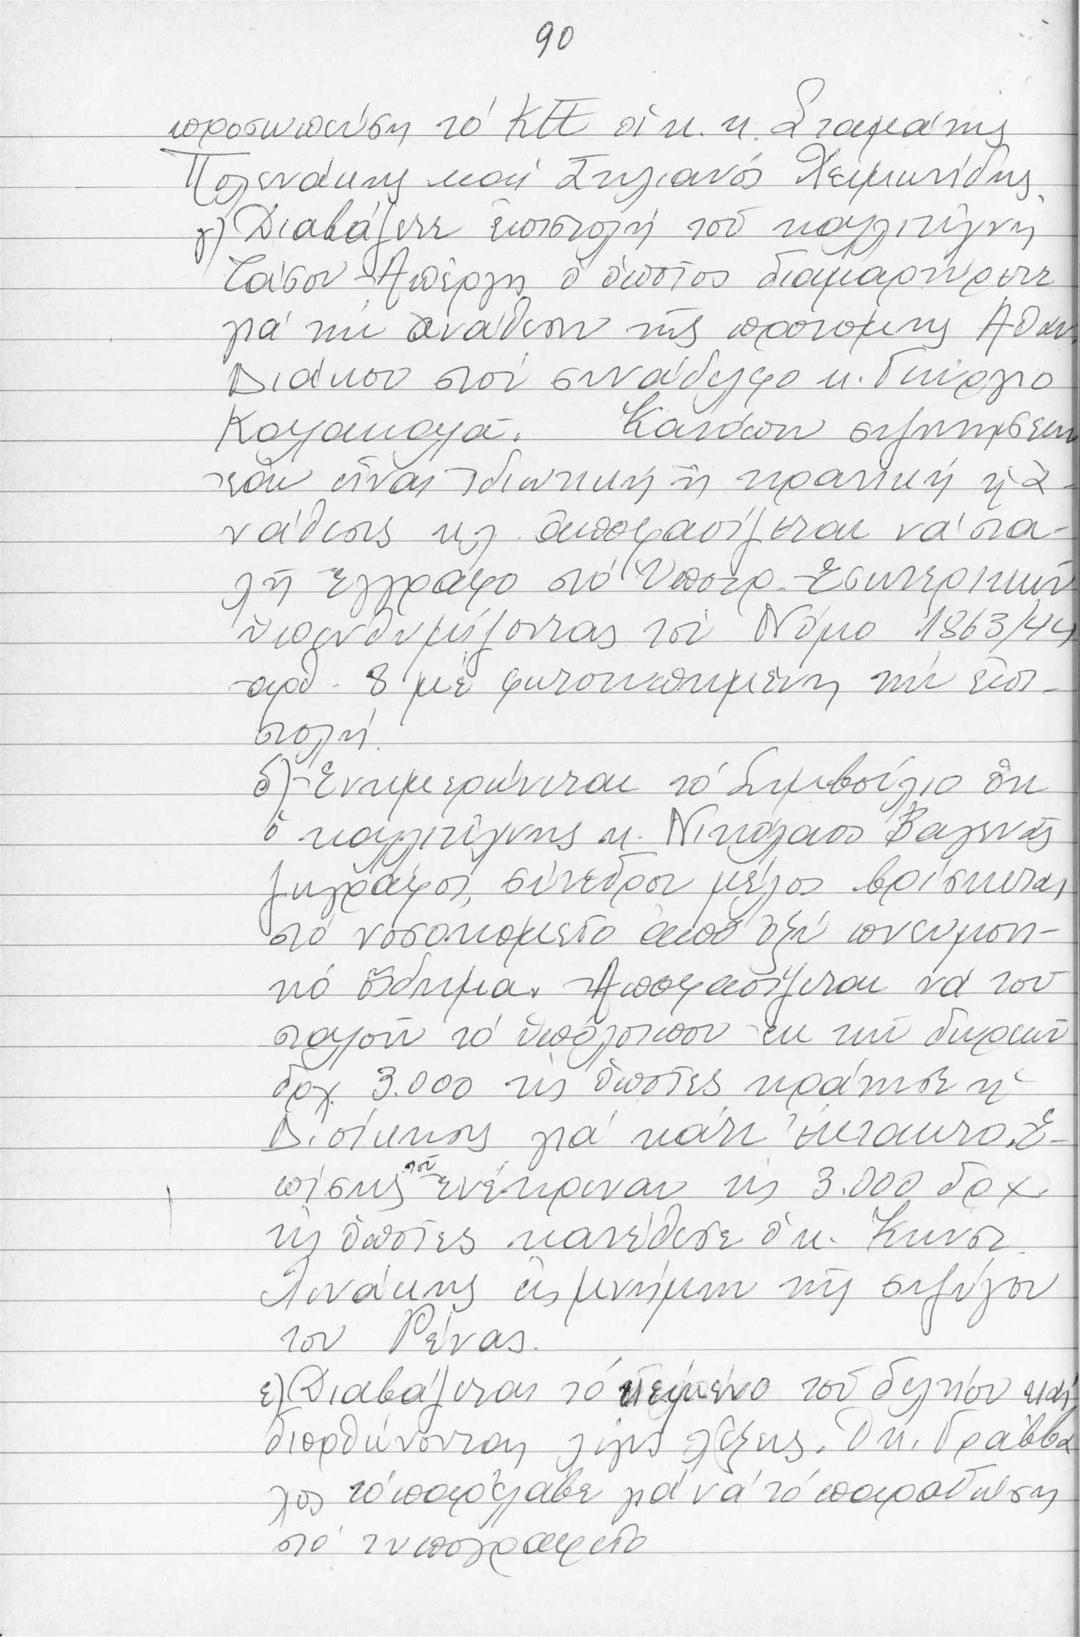 90
προσωπεύση τό ΚΠΕ οἱ κ. κ. Σταμάτης
Πολενάκης καί Στυλιανός Χειμωνίδης.
γ) Διαβάζεται ἐπιστολή τοῦ καλλιτέχνη
Τάσου Ἀπέργη ὁ ὁποῖος διαμαρτύρεται
γιά τήν ἀνάθεση τῆς προτομῆς Ἀθαν.
Διάκου στόν συνάδελφο κ. Γεώργιο
Καλακαλᾶ. Κατόπιν συζητήσεων
ἐάν εἶναι ἰδιωτική ἤ κρατική ἡ ἀ-
νάθεσις κλ ἀποφασίζεται νά στα-
λῆ ἔγγραφο στό Ὑπουρ. Ἐσωτερικῶν
ὑπενθυμίζοντας τόν Νόμο 1863/44
αρθ. 8 μέ φωτοτυπημένη τήν ἐπι-
στολή.
δ) Ἐνημερώνεται τό Συμβούλιο ὅτι
ὁ καλλιτέχνης κ. Νικόλαος Βαλενᾶς
ζωγράφος, σύνεδρο μέλος βρίσκεται
στό νοσοκομεῖο ἀπό ὀξύ πνευμονι-
κό οἴδημα. Ἀποφασίζεται νά του
σταλοῦν τό ὑπόλοιπον ἐκ τῶν δωρεῶν
δρχ. 3.000 τίς ὁποῖες κράτησε ἡ
Διοίκησις γιά κάτι ἔκτακτο. Ἐ-
πίσης τοῦ ἐνέκριναν τίς 3.000 δρχ.
τίς ὁποῖες κατέθεσε ὁ κ. Κωνστ.
Λινάκης εἰς μνήμην τῆς συζύγου
του Ρένας.
ε) Διαβάζεται τό κείμενο τοῦ δελτίου καί
διορθώνονται λίγες λέξεις. Ὁ κ. Γράββα
λος τό παρέλαβε γιά νά τό παραδώση
στό τυπογραφεῖο